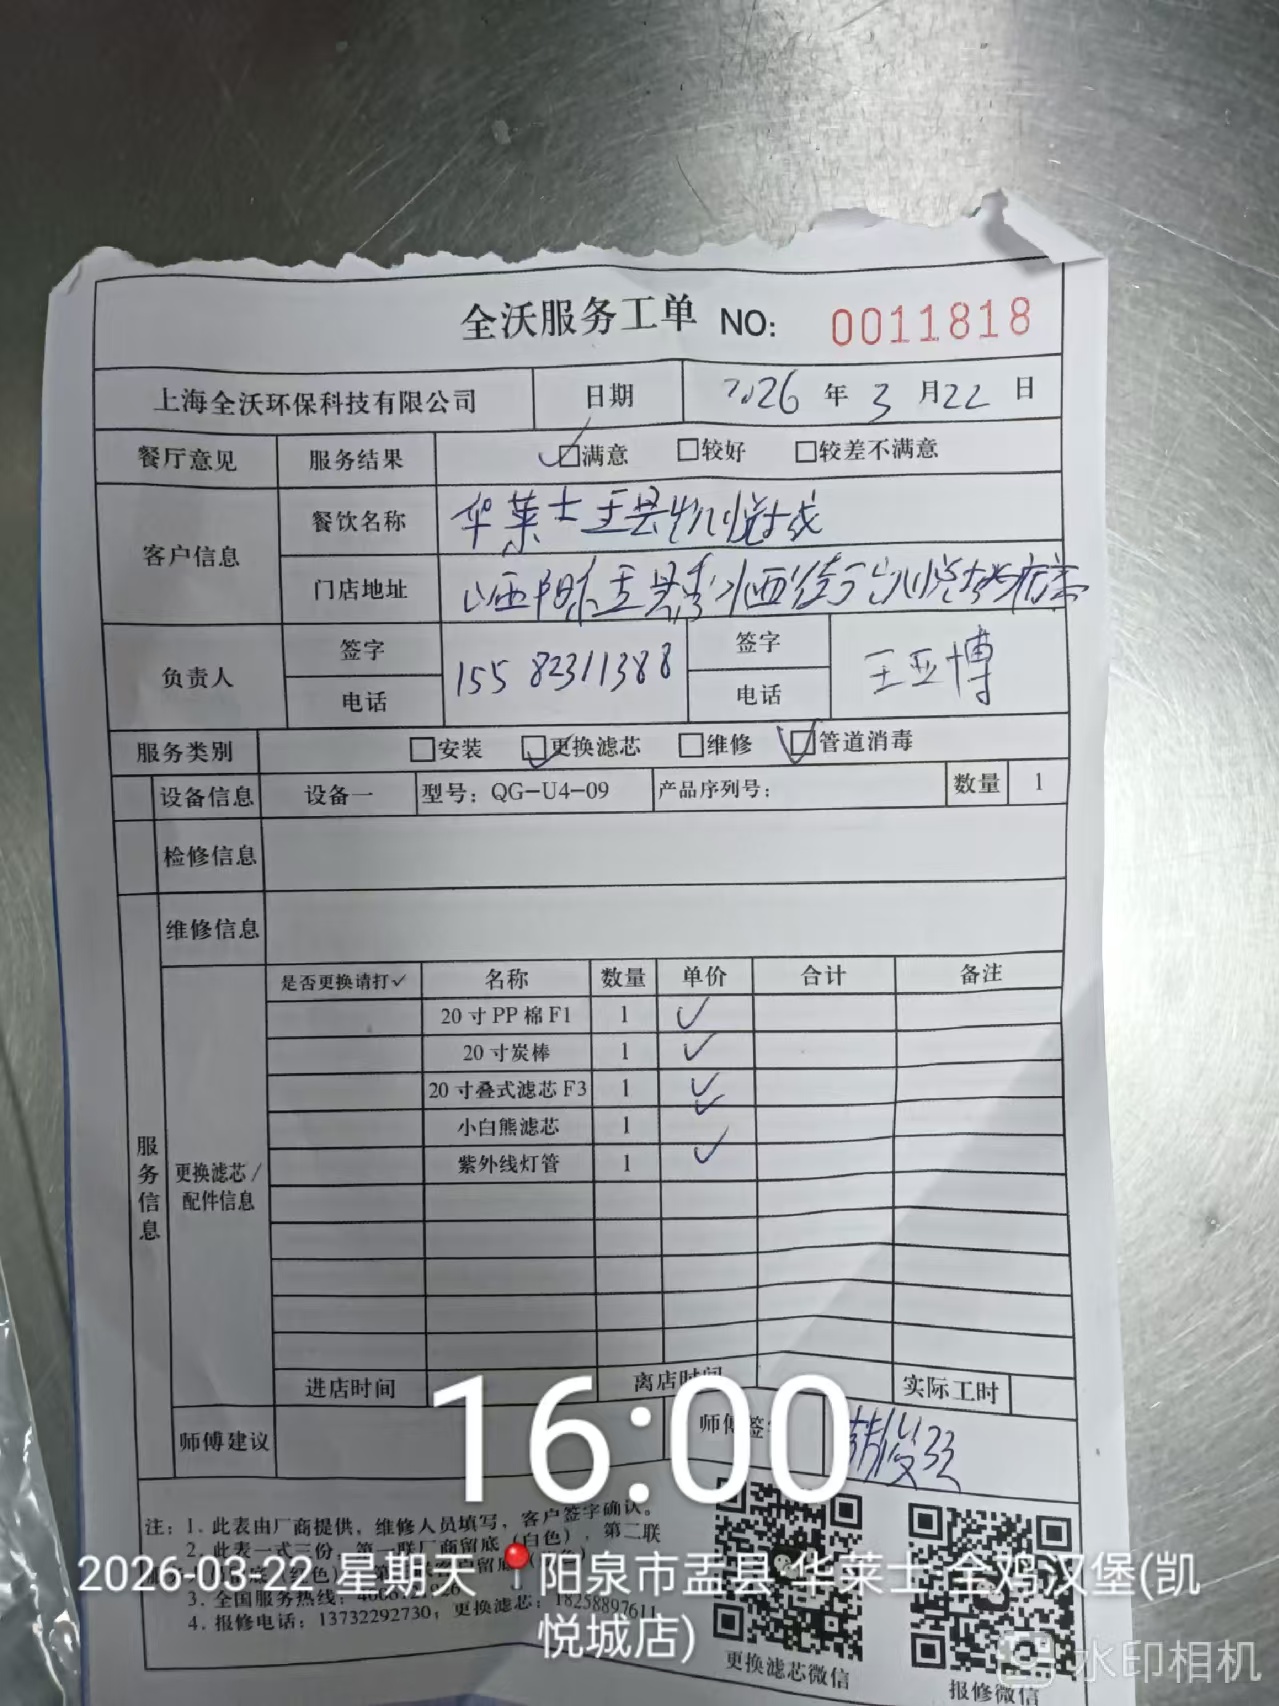 全沃服务工单 NO: 0011818
上海全沃环保科技有限公司 日期 2026 年 3 月 22 日
餐厅意见 服务结果 ☑满意 □较好 □较差不满意
客户信息 餐饮名称 华莱士王县凯悦城
门店地址 山西阳 王县秀水西街
负责人 签字 电话 15582311388 签字 电话 王亚博
服务类别 □安装 ☑更换滤芯 □维修 ☑管道消毒
设备信息 设备一 型号: QG-U4-09 产品序列号: 数量 1
检修信息
维修信息
服务信息
更换滤芯/配件信息
是否更换请打✓ 名称 数量 单价 合计 备注
20寸PP棉F1 1 ✓
20寸炭棒 1 ✓
20寸叠式滤芯F3 1 ✓
小白熊滤芯 1 ✓
紫外线灯管 1 ✓
进店时间 离店时间 实际工时
师傅建议 师傅签
16:00
注: 1. 此表由厂商提供, 维修人员填写, 客户签字确认。
2. 此表一式三份, 第一联厂商留底 (白色), 第二联
3. 全国服务热线:
4. 报修电话: 13732292730, 更换滤芯: 18258897611
2026-03-22 星期天 阳泉市盂县·华莱士·全鸡汉堡(凯
悦城店)
更换滤芯微信
报修微信
水印相机